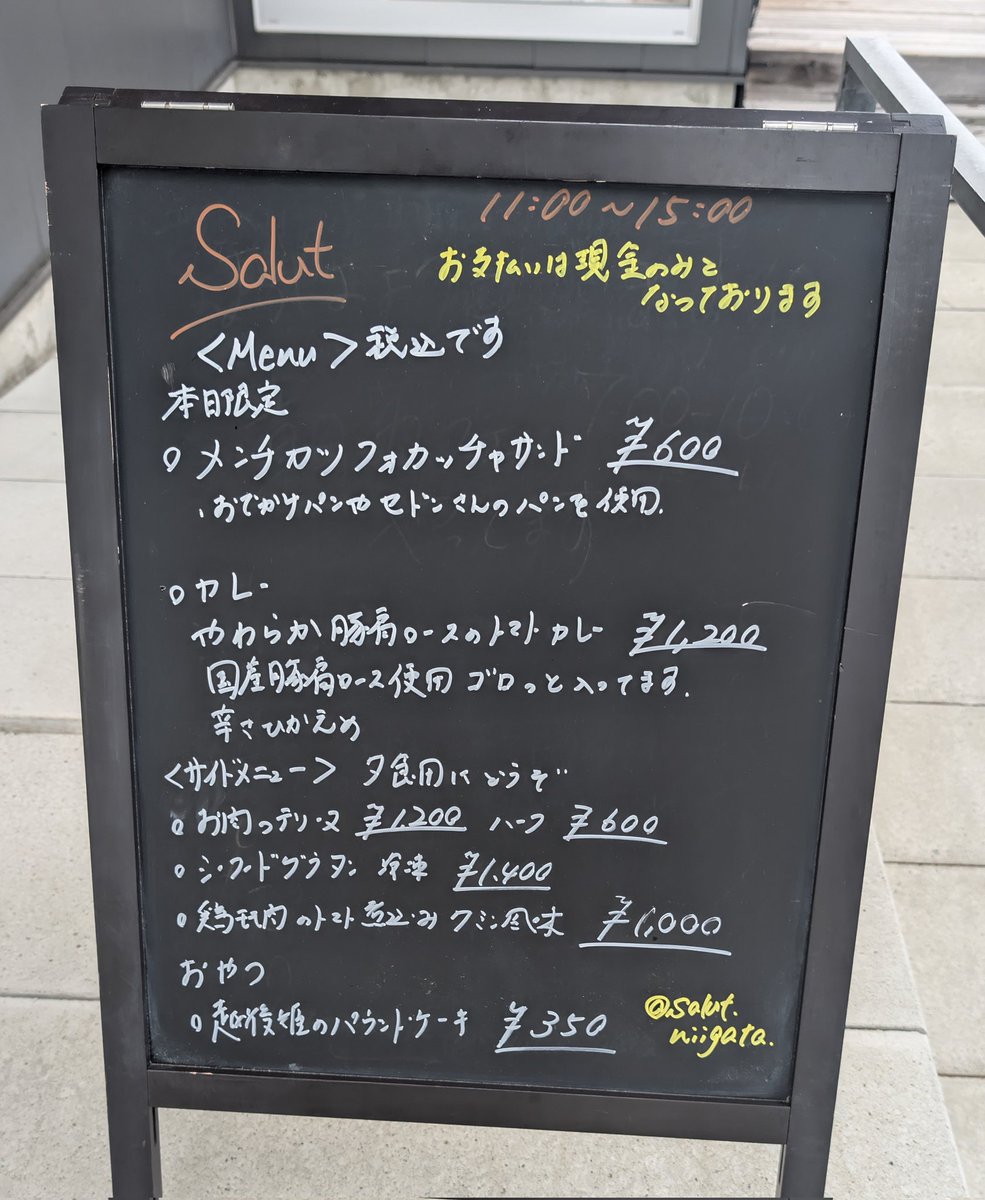 Salut
11:00~15:00
お支払いは現金のみと
なっております
<Menu>税込です
本日限定
○メンチカツフォカッチャサンド ¥600
、おでかけパンやセドンさんのパンを使用.
○カレー
やわらか豚肩ロースのトマトカレー ¥1,200
国産豚肩ロース使用 ゴロっと入ってます.
辛さひかえめ
<サイドメニュー> 夕食用にどうぞ
○お肉のテリーヌ ¥1,200 ハーフ ¥600
○シーフードグラタン 冷凍 ¥1,400
○鶏モモ肉のトマト煮込み クミン風味 ¥1,000
おやつ
○越後姫のパウンドケーキ ¥350
@salut.
niigata.